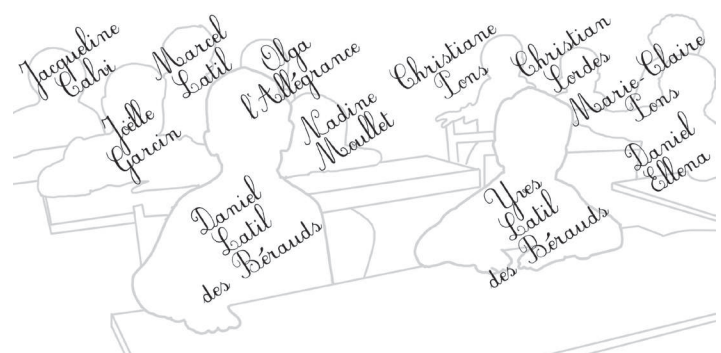 Jacqueline
Cahi
Marcel
Latil
Olga
l'Allégrance
Christiane
Pons
Christian
Lordes
Marie-Claire
Pons
Joëlle
Garcin
Nadine
Moullet
Daniel
Ellena
Daniel
Latil
des Bérauds
Yves
Latil
des Bérauds